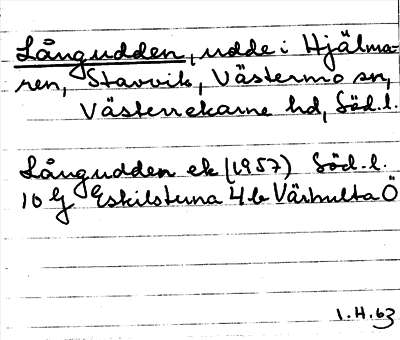 Långudden, udde i Hjälma-
ren, Stavvik, Västermo sn,
Västerrekarne hd, Söd.l.
Långudden ek (1957) Söd.l.
10 G Eskilstuna 4 b Värhulta Ö
1.H.63